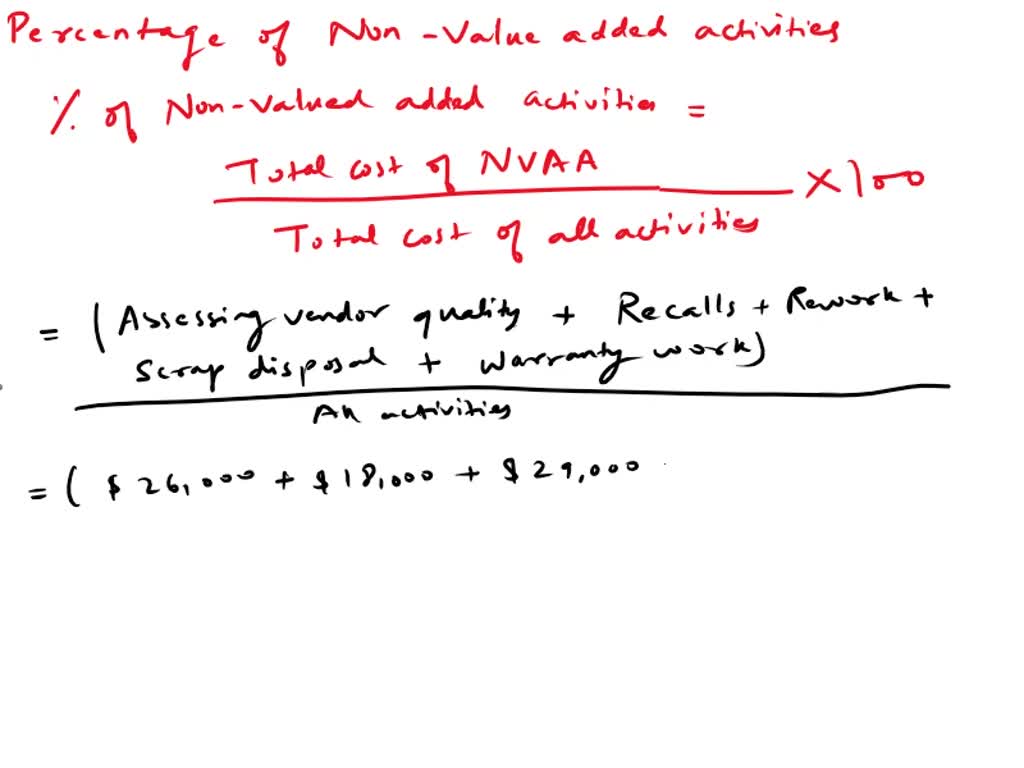 Percentage of Non-Value added activities
% of Non-valued added activities =
Total cost of NVAA
× 100
Total cost of all activities
= (Assessing vendor quality + Recalls + Rework +
Scrap disposal + Warranty work)
All activities
= ( $26,000 + $18,000 + $29,000